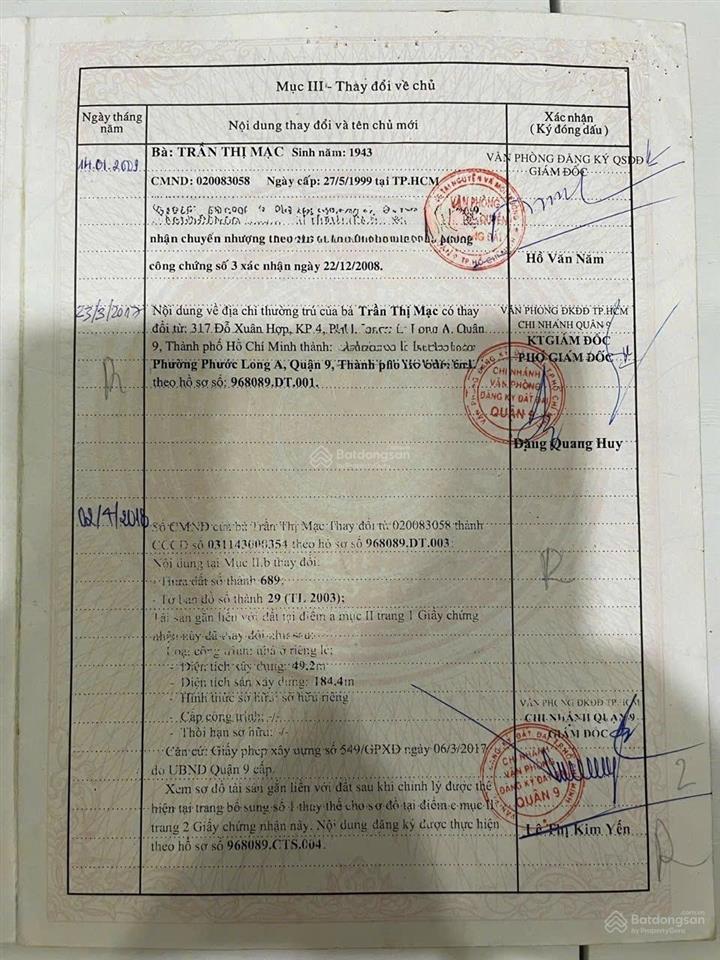 Mục III - Thay đổi về chủ
Ngày tháng năm
Nội dung thay đổi và tên chủ mới
Xác nhận
( Ký đóng dấu )
14.01.2009
Bà: TRẦN THỊ MẠC Sinh năm: 1943
CMND: 020083058 Ngày cấp: 27/5/1999 tại TP.HCM
nhận chuyển nhượng theo phòng
công chứng số 3 xác nhận ngày 22/12/2008.
VĂN PHÒNG ĐĂNG KÝ QSDĐ
GIÁM ĐỐC
Hồ Văn Năm
23/3/2017
Nội dung về địa chỉ thường trú của bà Trần Thị Mạc có thay
đổi từ: 317 Đỗ Xuân Hợp, KP.4, Long A, Quận
9, Thành phố Hồ Chí Minh thành:
Phường Phước Long A, Quận 9, Thành phố
theo hồ sơ số: 968089.DT.001.
VĂN PHÒNG ĐKĐĐ TP.HCM
CHI NHÁNH QUẬN 9
KT.GIÁM ĐỐC
PHÓ GIÁM ĐỐC
CHI NHÁNH
VĂN PHÒNG
ĐĂNG KÝ ĐẤT ĐAI
QUẬN 9
Đặng Quang Huy
Batdongsan
02/4/2018
Số CMND của bà Trần Thị Mạc Thay đổi từ 020083058 thành
CCCD số 031143003354 theo hồ sơ số 968089.DT.003;
Nội dung tại Mục II.b thay đổi:
- Thửa đất số thành 689;
- Tờ bản đồ số thành 29 (TL 2003);
Tài sản gắn liền với đất tại điểm a mục II trang 1 Giấy chứng
nhận này đã thay đổi như sau:
Loại công trình: nhà ở riêng lẻ;
- Diện tích xây dựng: 49,2m
- Diện tích sàn xây dựng: 184,4m
- Hình thức sở hữu: sở hữu riêng
- Cấp công trình: -/-
- Thời hạn sở hữu: -/-
Căn cứ: Giấy phép xây dựng số 549/GPXD ngày 06/3/2017
do UBND Quận 9 cấp.
Xem sơ đồ tài sản gắn liền với đất sau khi chỉnh lý được thể
hiện tại trang bổ sung số 1 thay thế cho sơ đồ tại điểm c mục II
trang 2 Giấy chứng nhận này. Nội dung đăng ký được thực hiện
theo hồ sơ số 968089.CTS.004.
VĂN PHÒNG ĐKĐĐ TP.HCM
CHI NHÁNH QUẬN 9
GIÁM ĐỐC
CHI NHÁNH
VĂN PHÒNG
ĐĂNG KÝ ĐẤT ĐAI
QUẬN 9
Lê Thị Kim Yến
2
Batdongsan
by PropertyGuru